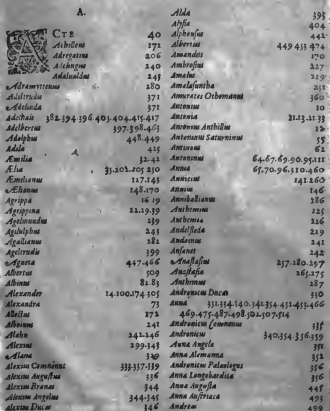 A.
ACTE 40
Achilleus 171
Adregatus 206
Actingus 240
Adaluvaldus 243
Adramyttenus 280
Adeltrudis 371
Adelinda 371
Adelhais 382.394.396.403.404.415.417
Adelbertus 397.398.463
Adolphus 448.449
Adila 425
Æmilia 32.42
Ælia 33.202.205.250
Æmilianus 117.143
Ælianus 148.170
Agrippa 16.19
Agrippina 22.29.39
Agelmundus 239
Agilulphus 243
Agallianus 282
Ageltrudis 399
Agneta 447.466
Albertus 509
Albinus 82.83
Alexander 14.100.174.305
Alexandra 73
Allectus 172
Alboinus 241
Alahis 242.246
Alexius 299.343
Alana 329
Alexius Comnenus 333.337.339
Alexius Augustus 336
Alexius Branas 344
Alexius Angelus 344.345
Alexius Ducas 346
Alda 395
Alysia 404
Alphonsus 442
Albertus 449.453.474
Amandus 170
Ambrosius 227
Amalus 219
Amalasuntha 231
Amurates Othomanus 360
Antonius 10
Antonia 21.23.31.33
Antonius Anthillus 12
Antoninus Saturninus 55
Antinous 62
Antoninus 64.67.69.90.95.111
Annia 65.70.96.110.460
Annicius 141.260
Annius 146
Annibalianus 186
Anthemius 225
Anthemia 226
Andofleda 229
Andoinus 241
Ansanes 242
Anastasius 257.280.297
Anastasia 265.275
Anthemius 287
Andronicus Ducas 330
Anna 331.334.340.342.354.452.455.466
469.475.487.498.502.507.514
Andronicus Comnenus 335
Andronicus 340.354.356.359
Anna Angela 351
Anna Alemanna 352
Andronicus Palæologus 356
Anna Longobardica 356
Anna Augusta 445
Anna Austriaca 493
Andreas 499